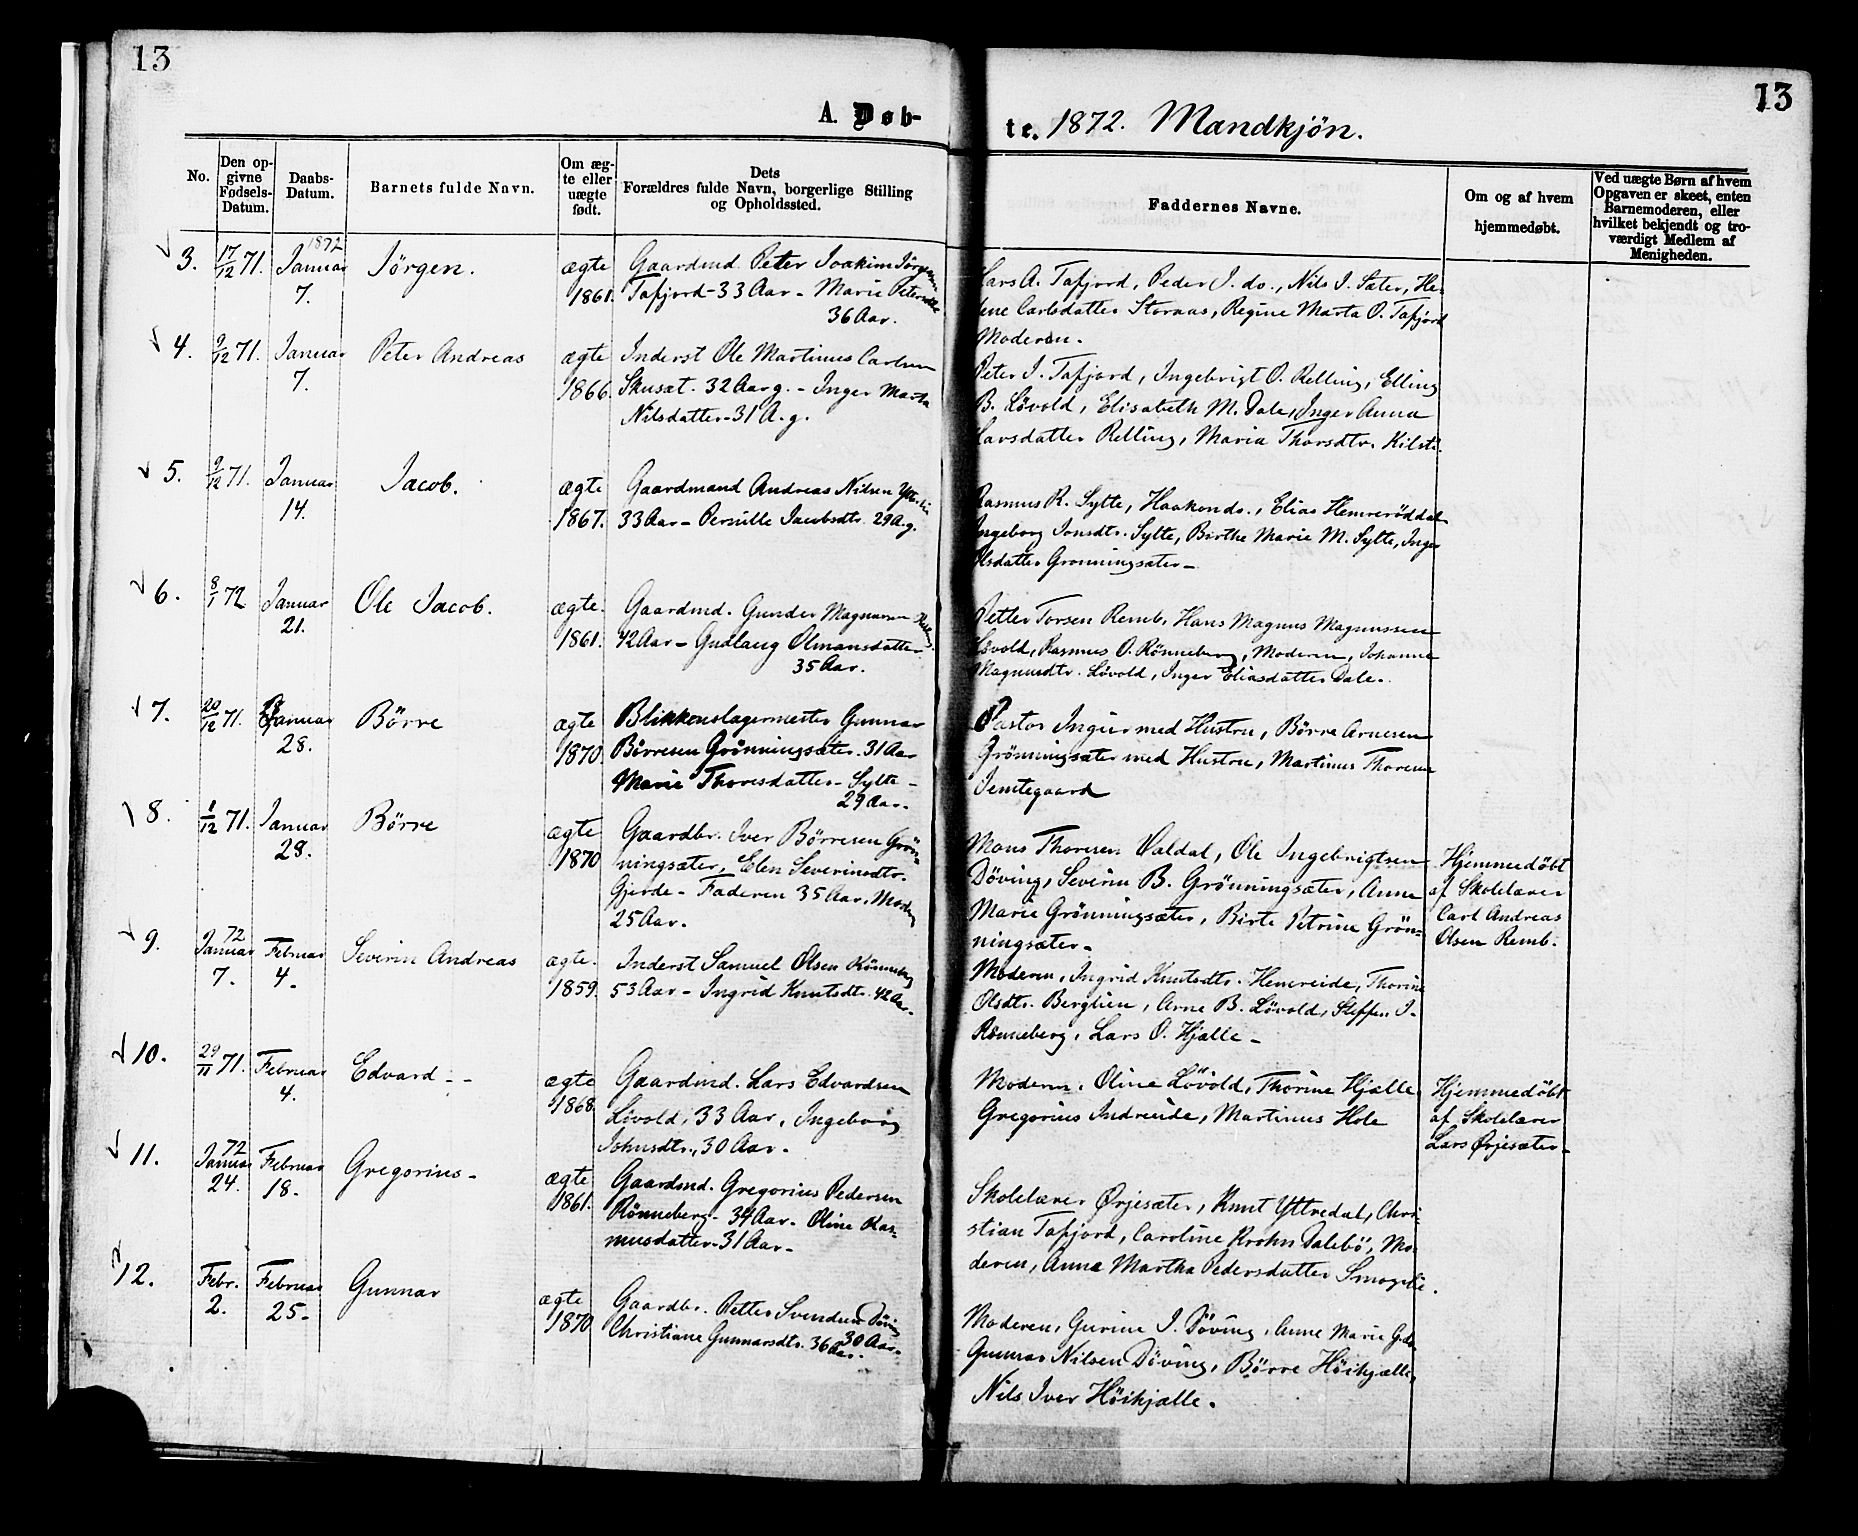 13
13
A. Døb-
te. 1872. Mandkjön.
No.
Den op-
givne
Fødsels-
Datum.
Daabs-
Datum.
Barnets fulde Navn.
Om æg-
te eller
uægte
født.
Dets
Forældres fulde Navn, borgerlige Stilling
og Opholdssted.
Faddernes Navne.
Om og af hvem
hjemmedøbt.
Ved uægte Børn af hvem
Opgaven er skeet, enten
Barnemoderen, eller
hvilket bekjendt og tro-
værdigt Medlem af
Menigheden.
3.
17/12 71.
1872
Januar
7.
Jörgen.
ægte
1861.
Gaardmd. Peter Joakim
Tafjord - 33 Aar - Marie
36 Aar.
Lars A. Tafjord, Peder J. do., Nils J. Sæter, He-
lene Carlsdatter Stornæs, Regine Marta O. Tafjord
Moderen.
4.
9/12 71.
Januar
7.
Peter Andreas
ægte
1866.
Inderst Ole Martinus Carlsen
Skusæt. 32 Aar g. - Inger Marta
Nilsdatter - 31 A. g.
Peter J. Tafjord, Ingebrigt O. Relling, Elling
B. Lövold, Elisabeth M. Dale, Inger Anna
Larsdatter Relling, Maria Thorsdtr. Kilsti.
5.
9/12 71.
Januar
14.
Jacob.
ægte
1867.
Gaardmand Andreas Nilsen
33 Aar - Pernille Jacobsdtr. 29 A. g.
Rasmus R. Sylte, Haakon do., Elias Hemreröddal
Ingeborg Jonsdtr. Sylte, Birthe Marie M. Sylte, Inger
Olsdatter Grönningsæter -
6.
8/1 72
Januar
21.
Ole Jacob.
ægte.
1861.
Gaardmd. Gunder Magnussen
42 Aar - Gudlaug Olmansdatter
35 Aar.
Petter Torsen Remb, Hans Magnus Magnussen
Lövold, Rasmus O. Rönneberg, Moderen, Johanne
Magnusdtr. Lövold, Inger Eliasdatter Dale.
7.
20/12 71.
Januar
28.
Börre
ægte
1870
Blikkenslagermester Gunnar
Börresen Grönningsæter. 31 Aar
Marie Thoresdatter - Sylte -
29 Aar.
Pastor Ingier med Hustru, Börre Arnesen
Grönningsæter med Hustru, Martinus Thoresen
Jemtegaard
8.
1/12 71.
Januar
28.
Börre
ægte
1870
Gaardbr. Iver Börresen Grön-
ningsæter, Elen Severinsdtr.
Gjerde - Faderen 35 Aar, Moder
25 Aar.
Mons Thoresen Valdal, Ole Ingebrigtsen
Döving, Severin B. Grönningsæter, Anne
Marie Grönningsæter, Birte Petrine Grön-
ningsæter -
Hjemmedöbt
af Skolelærer
Carl Andreas
Olsen Remb.
9.
72
Januar
7.
Februar
4.
Severin Andreas
ægte.
1859.
Inderst Samuel Olsen Rönneberg
53 Aar - Ingrid Knutsdtr. 42 Aar.
Moderen, Ingrid Knutsdtr. Hemreide, Thorine
Olsdtr. Berglien, Arne B. Lövold, Steffen J.
Rönneberg, Lars O. Hjelle -
10.
29/11 71.
Februar
4.
Edvard - -
ægte
1868
Gaardmd. Lars Edvardsen
Lövold, 33 Aar, Ingeborg
Johnsdtr., 30 Aar.
Moderen, Oline Lövold, Thorine Hjelle
Gregorius Indreeide, Martinus Hole
Hjemmedöbt
af Skolelærer
Lars Ørjesæter -
11.
72
Januar
24.
Februar
18.
Gregorius -
ægte
1861.
Gaardmd. Gregorius Pedersen
Rönneberg - 34 Aar. Oline Ras-
musdatter - 31 Aar -
Skolelærer Ørjesæter, Knut Yttredal, Chri-
stian Tafjord, Caroline Krohn Dalebö, Mo-
deren, Anna Martha Pedersdatter Smogeli.
12.
Febr.
2.
Februar
25.
Gunnar
ægte
1870
Gaardbr. Petter Svendsen Döving
30 Aar.
Christiane Gunnarsdtr. 36 Aar.
Moderen, Gurine J. Döving, Anne Marie
Gunnar Nilsen Döving, Börre Höihjelle,
Nils Iver Höihjelle.